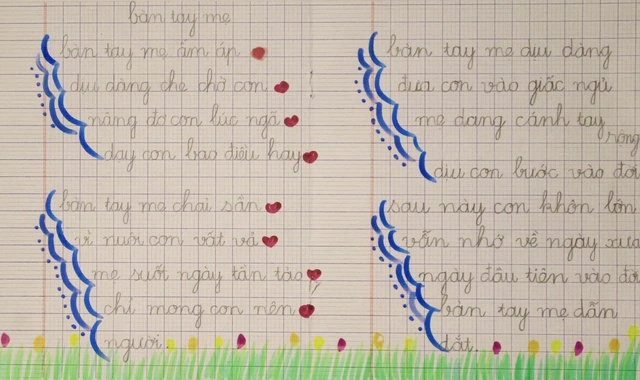 bàn tay mẹ
bàn tay mẹ ấm áp
dịu dàng che chở con
nâng đỡ con lúc ngã
dạy con bao điều hay
bàn tay mẹ chai sần
vì nuôi con vất vả
mẹ suốt ngày tần tảo
chỉ mong con nên
người.
bàn tay mẹ dịu dàng
đưa con vào giấc ngủ
mẹ dang cánh tay
rộng
dìu con bước vào đời
sau này con khôn lớn
vẫn nhớ về ngày xưa
ngày đầu tiên vào đời
bàn tay mẹ dẫn
dắt.